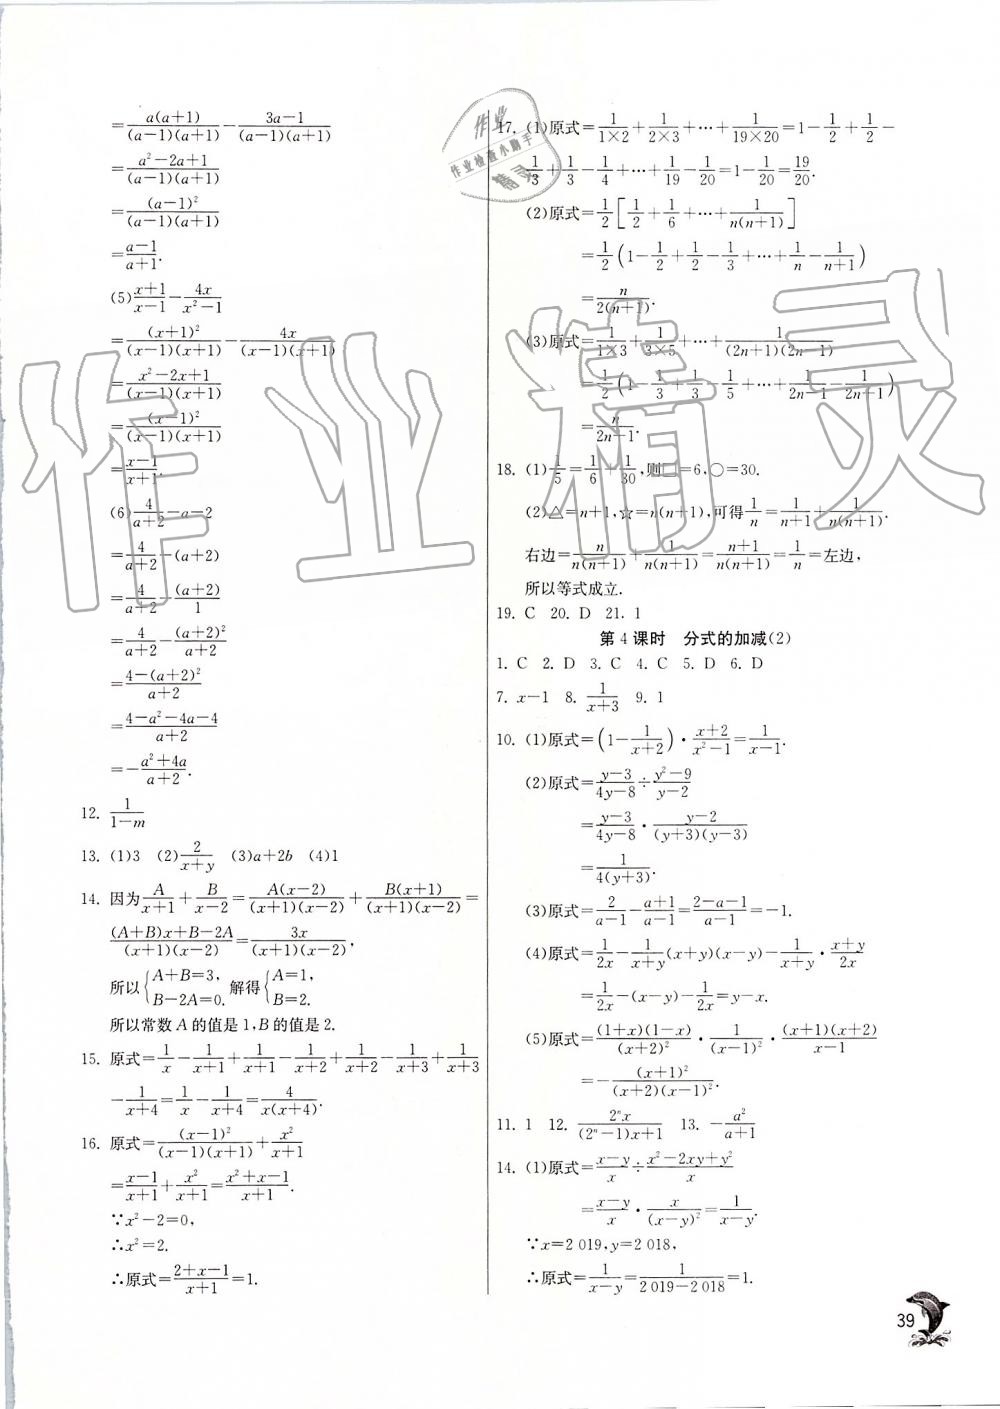 =a(a+1)/((a-1)(a+1))-(3a-1)/((a-1)(a+1))
=(a²-2a+1)/((a-1)(a+1))
=(a-1)²/((a-1)(a+1))
=(a-1)/(a+1).
(5)(x+1)/(x-1)-4x/(x²-1)
=(x+1)²/((x-1)(x+1))-4x/((x-1)(x+1))
=(x²-2x+1)/((x-1)(x+1))
=(x-1)²/((x-1)(x+1))
=(x-1)/(x+1).
(6)4/(a+2)-a=2
=4/(a+2)-(a+2)
=4/(a+2)-(a+2)/1
=4/(a+2)-(a+2)²/(a+2)
=(4-(a+2)²)/(a+2)
=(4-a²-4a-4)/(a+2)
=-(a²+4a)/(a+2).
12. 1/(1-m)
13. (1)3 (2)2/(x+y) (3)a+2b (4)1
14. 因为A/(x+1)+B/(x-2)=A(x-2)/((x+1)(x-2))+B(x+1)/((x+1)(x-2))=
((A+B)x+B-2A)/((x+1)(x-2))=3x/((x+1)(x-2)),
所以{A+B=3, B-2A=0. 解得{A=1, B=2.
所以常数 A 的值是 1,B 的值是 2.
15. 原式=1/x-1/(x+1)+1/(x+1)-1/(x+2)+1/(x+2)-1/(x+3)+1/(x+3)
-1/(x+4)=1/x-1/(x+4)=4/(x(x+4)).
16. 原式=(x-1)²/((x-1)(x+1))+x²/(x+1)
=(x-1)/(x+1)+x²/(x+1)=(x²+x-1)/(x+1).
∵x²-2=0,
∴x²=2.
∴原式=(2+x-1)/(x+1)=1.
17. (1)原式=1/(1×2)+1/(2×3)+…+1/(19×20)=1-1/2+1/2-
1/3+1/3-1/4+…+1/19-1/20=1-1/20=19/20.
(2)原式=1/2[1/2+1/6+…+1/(n(n+1))]
=1/2(1-1/2+1/2-1/3+…+1/n-1/(n+1))
=n/(2(n+1)).
(3)原式=1/(1×3)+1/(3×5)+…+1/((2n+1)(2n-1))
=1/2(1-1/3+1/3-1/5+…+1/(2n-1)-1/(2n+1))
=n/(2n-1).
18. (1)1/5=1/6+1/30,则□=6,○=30.
(2)△=n+1,☆=n(n+1),可得1/n=1/(n+1)+1/(n(n+1)).
右边=n/(n(n+1))+1/(n(n+1))=(n+1)/(n(n+1))=1/n=左边,
所以等式成立.
19. C 20. D 21. 1
第 4 课时 分式的加减(2)
1. C 2. D 3. C 4. C 5. D 6. D
7. x-1 8. 1/(x+3) 9. 1
10. (1)原式=(1-1/(x+2))·(x+2)/(x²-1)=1/(x-1).
(2)原式=(y-3)/(4y-8)÷(y²-9)/(y-2)
=(y-3)/(4y-8)·(y-2)/((y+3)(y-3))
=1/(4(y+3)).
(3)原式=2/(a-1)-(a+1)/(a-1)=(2-a-1)/(a-1)=-1.
(4)原式=1/2x-1/(x+y)(x+y)(x-y)-1/(x+y)·(x+y)/2x
=1/2x-(x-y)-1/2x=y-x.
(5)原式=(1+x)(1-x)/(x+2)²·1/(x-1)²·(x+1)(x+2)/(x-1)
=-(x+1)²/((x+2)(x-1)²).
11. 1 12. 2ⁿx/((2ⁿ-1)x+1) 13. -a²/(a+1)
14. (1)原式=(x-y)/x÷(x²-2xy+y²)/x
=(x-y)/x·x/(x-y)²=1/(x-y).
∵x=2 019,y=2 018,
∴原式=1/(x-y)=1/(2 019-2 018)=1.
39
作业
作业检查小助手
精灵
作业精灵